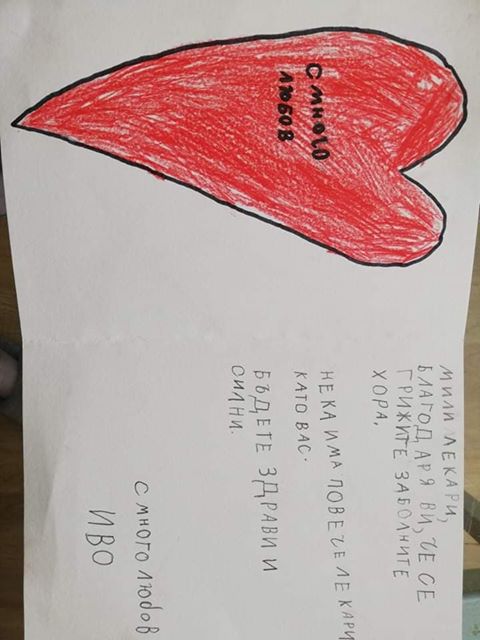 С МНОГО
ЛЮБОВ
МИЛИ ЛЕКАРИ,
БЛАГОДАРЯ ВИ, ЧЕ СЕ
ГРИЖИТЕ ЗАБОЛНИТЕ
ХОРА.
НЕКА ИМА ПОВЕЧЕ ЛЕКАРИ
КАТО ВАС.
БЪДЕТЕ ЗДРАВИ И
СИЛНИ.
С МНОГО ЛЮБОВ
ИВО